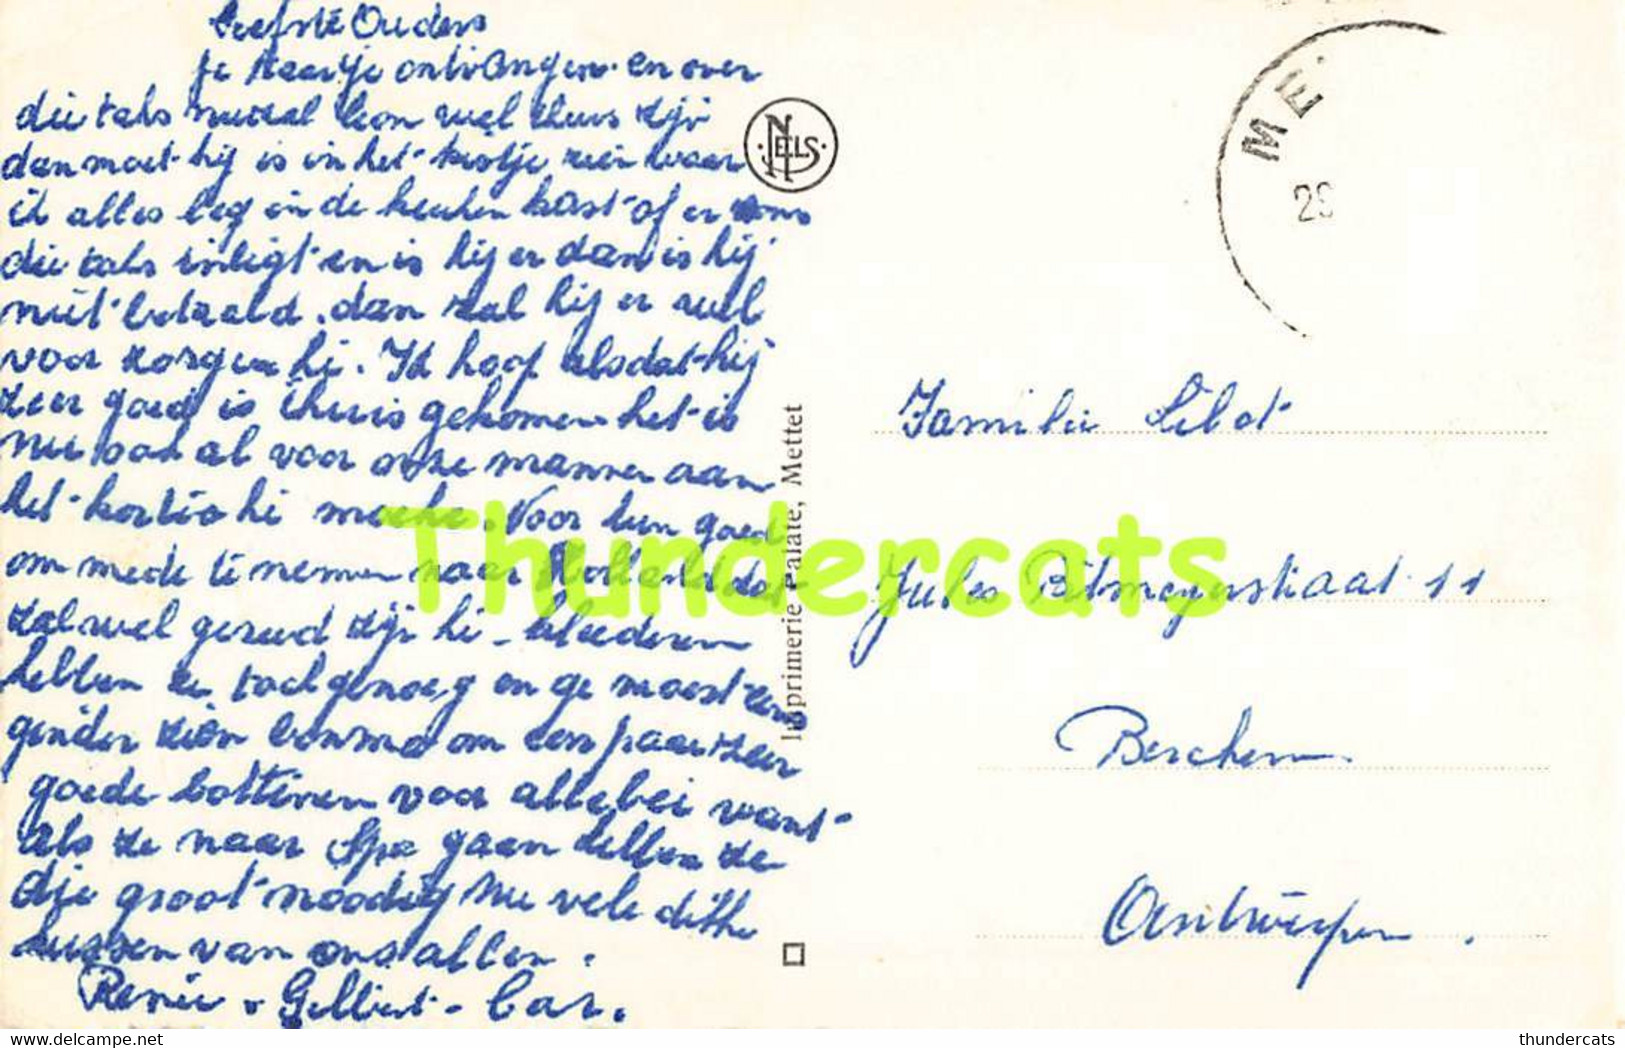 Liefste Ouders
je kaartje ontvangen en over
die taks nu zal Leon wel thuis zijn
dan moet hij is in het kistje zien waar
ik alles leg in de keuken kast of er ons
die taks inligt en is hij er dan is hij
niet betaald. dan zal hij er wel
voor zorgen hé. Ik hoop alsdat hij
zeer goed is thuis gekomen het is
nu ook al voor onze mannen aan
het korten hé. Voor hun goed
om mede te nemen naar Holland dat
zal wel gereed zijn hé - kleederen
hebben ze toch genoeg en ge moest eens
ginder zien bonma om een paar zeer
goede bottinen voor allebei want
als ze naar Spa gaan hebben ze
die groot noodig nu vele dikke
kussen van ons allen.
Renée - Gilbert -
NELS
Imprimerie Palate, Mettet
ME
Familie Libot
Jules straat 11
Berchem
Antwerpen.
Thundercats
delcampe.net
thundercats